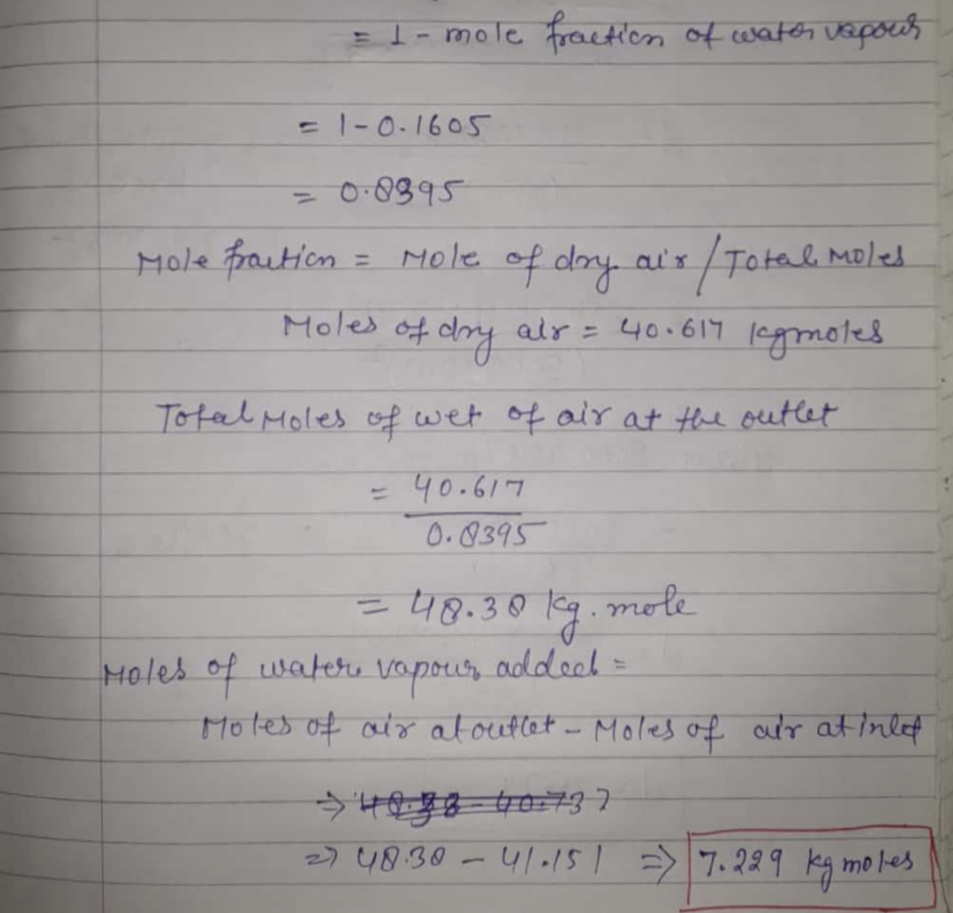 = 1 - mole fraction of water vapour
= 1-0.1605
= 0.8395
Mole fraction = Mole of dry air / Total Moles
Moles of dry air = 40.617 kgmoles
Total Moles of wet of air at the outlet
= 40.617
0.8395
= 48.38 kg.mole
Moles of water vapour added =
Moles of air at outlet - Moles of air at inlet
⇒ 48.38 - 41.151 ⇒ 7.229 kg moles